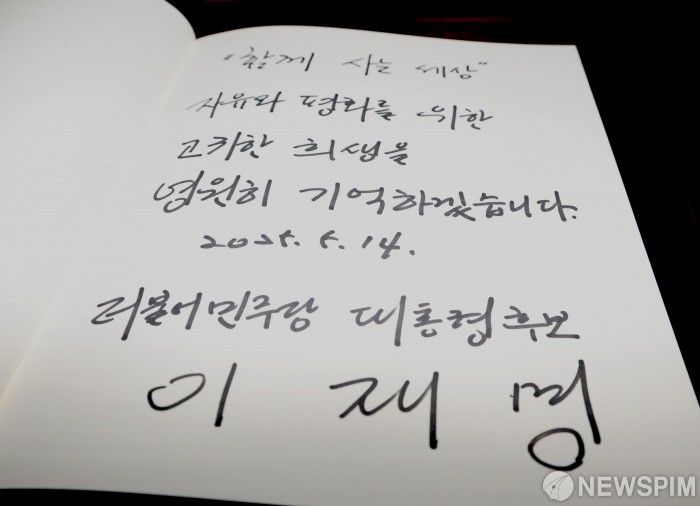 "함께 사는 세상"
자유와 평화를 위한
고귀한 희생을
영원히 기억하겠습니다.
2025. 5. 14.
더불어민주당 대통령후보
이 재 명
NEWSPIM